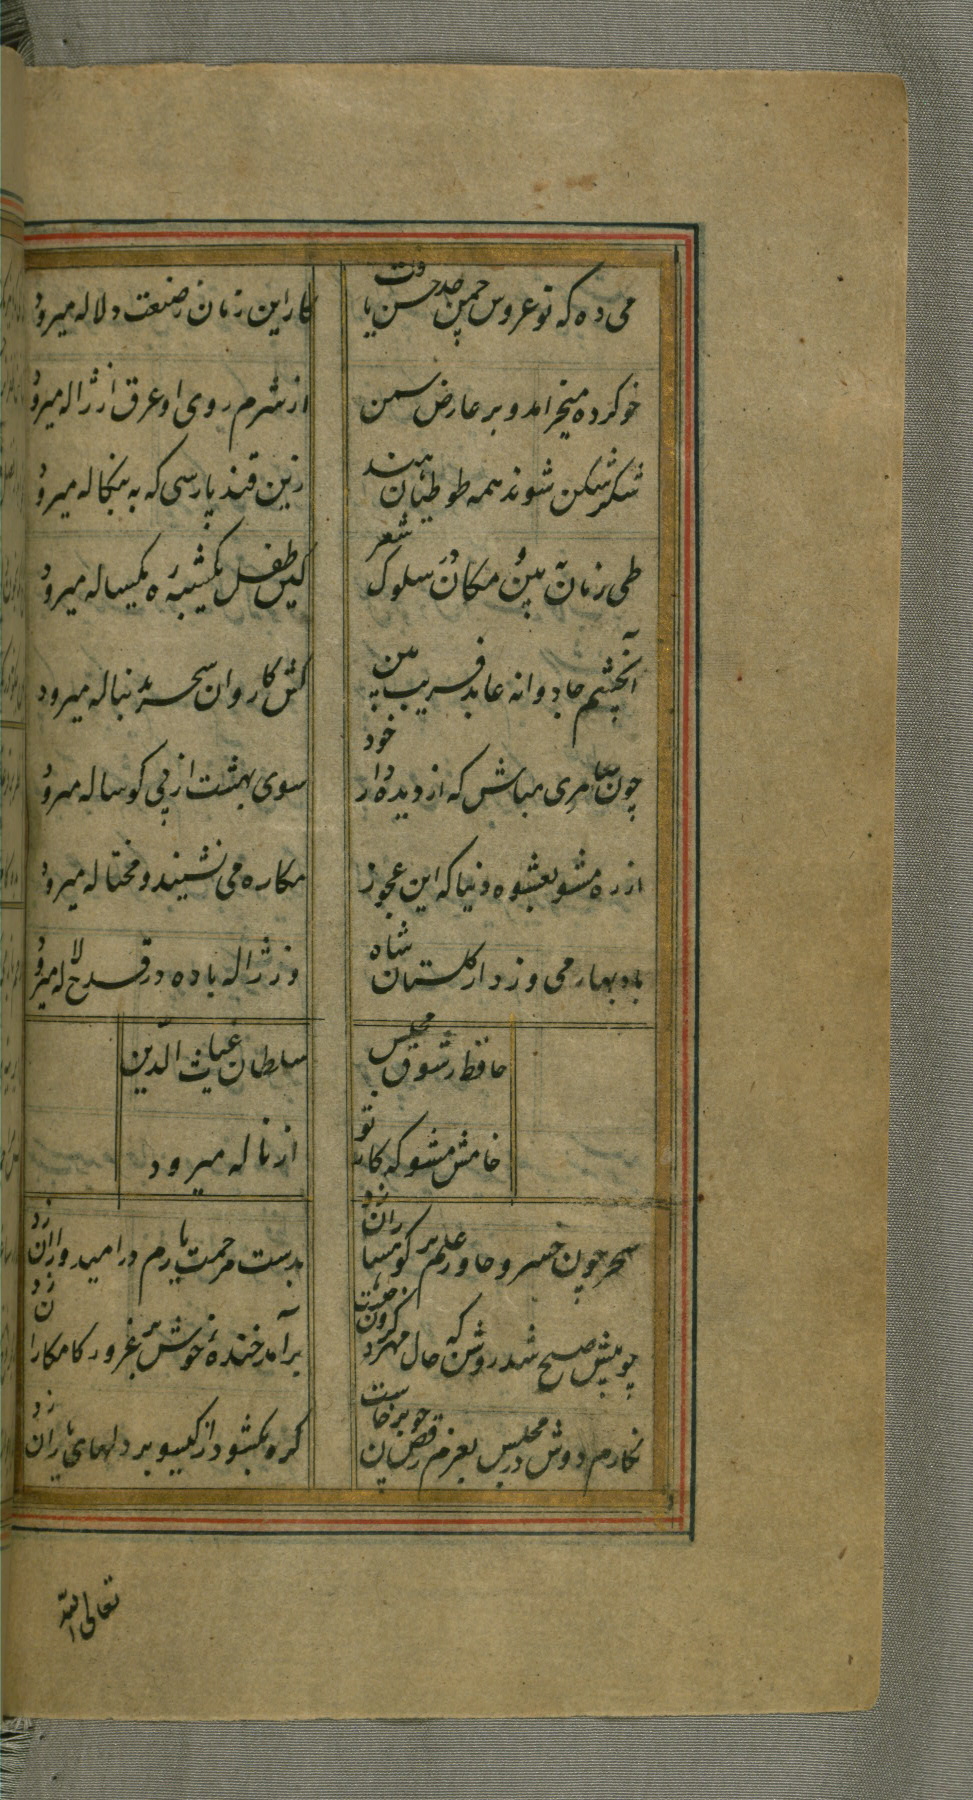 می ده که نو عروس چمن حد حسن یافت
کار این زمان ز صنعت دلاله میرود
خوکرده میخرامد و بر عارض سمن
از شرم روی او عرق از ژاله میرود
شکرشکن شوند همه طوطیان هند
زین قند پارسی که به بنکاله میرود
طی زمان ببین و مکان در سلوک شعر
کین طفل یکشبه ره یکساله میرود
آنچشم جادوانه عابد فریب بین
کش کاروان سحر بدنباله میرود
چون سامری مباش که از دیده از خود
سوی بهشت از پی کوساله میرود
از ره مشو بعشوه دنیا که این عجوز
مکاره می نشیند و محتاله میرود
باد بهار می وزد از کلستان شاه
وز ژاله باده در قدح لاله میرود
حافظ ز شوق مجلس
سلطان غیاث الدین
خامش مشو که کار تو
از ناله میرود
سحر چون خسرو خاور علم بر کوهساران زد
بدست مرحمت یارم در امیدواران زد
چو پیش صبح شد روشن که حال مهر کردون چیست
برآمد خندهٔ خوش بر غرور کامکاران زد
نکارم دوش در مجلس بعزم رقص چون برخاست
کره بکشود از کیسو و بر دلهای یاران زد
تعالی الله